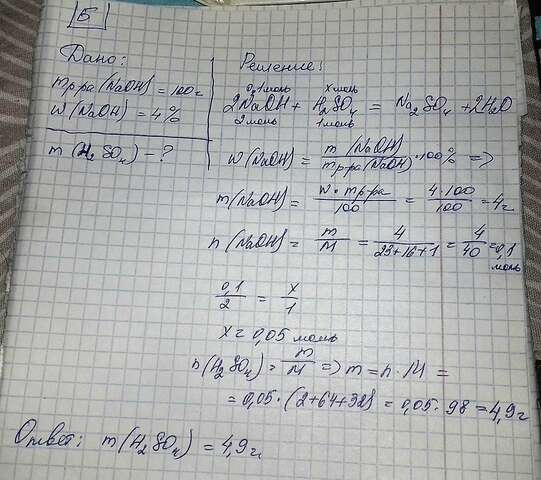 Б
Дано:
mр-ра (NaOH) = 100г
w (NaOH) = 4%
m (H₂SO₄) - ?
Решение:
0,1 моль x моль
2NaOH + H₂SO₄ = Na₂SO₄ + 2H₂O
2 моль 1 моль
w (NaOH) = m (NaOH) / mр-ра (NaOH) · 100% =>
m (NaOH) = w · mр-ра / 100 = 4 · 100 / 100 = 4г
n (NaOH) = m / M = 4 / 23+16+1 = 4 / 40 = 0,1 моль
0,1 / 2 = x / 1
x = 0,05 моль
n (H₂SO₄) = m / M => m = n · M =
= 0,05 · (2+64+32) = 0,05 · 98 = 4,9г
Ответ: m (H₂SO₄) = 4,9г.